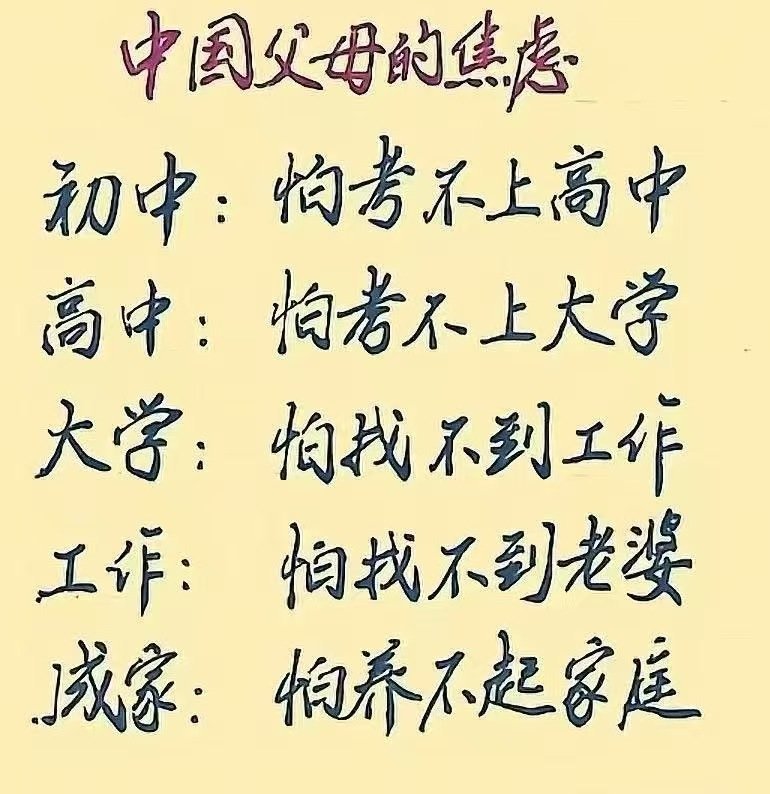 中国父母的焦虑
初中：怕考不上高中
高中：怕考不上大学
大学：怕找不到工作
工作：怕找不到老婆
成家：怕养不起家庭